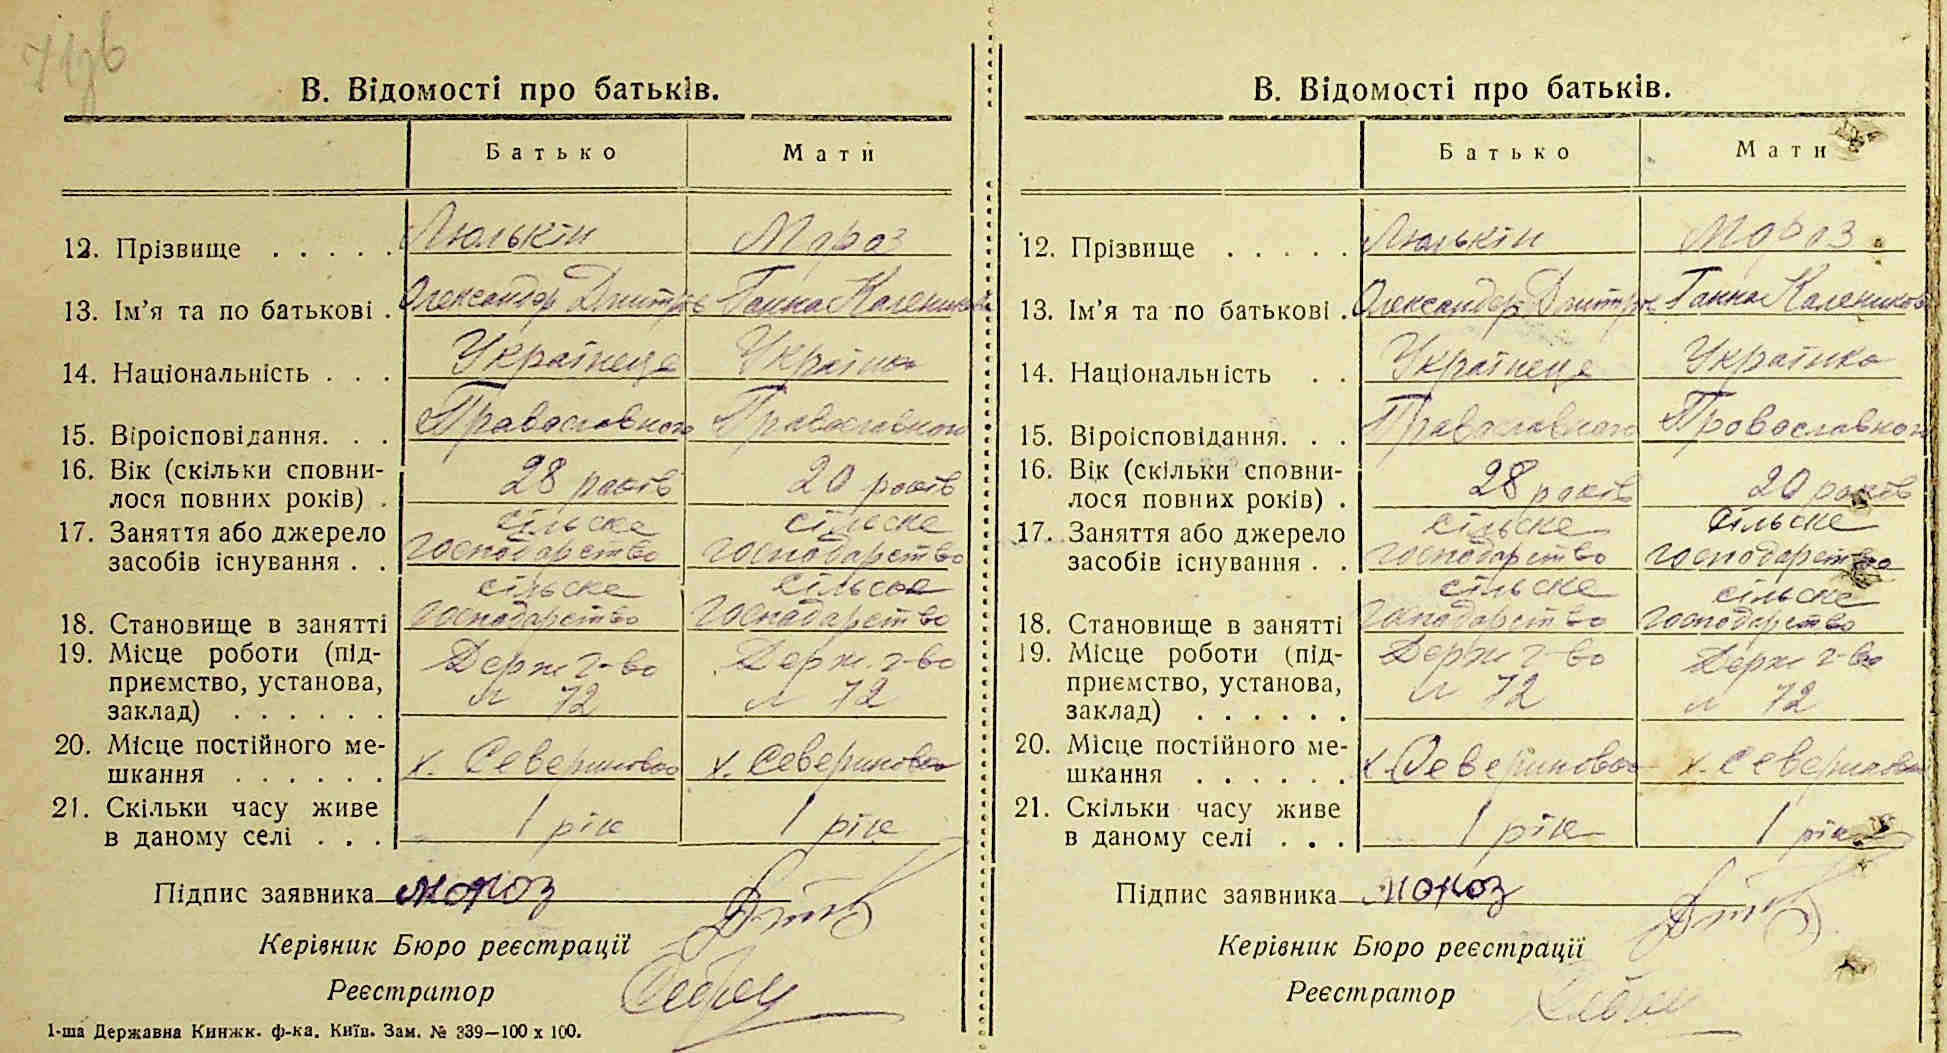 71дв
В. Відомості про батьків.
Батько Мати
12. Прізвище . . . . . Люлькін Мороз
13. Ім'я та по батькові . Олександор Дмитров Ганна Каленикова
14. Національність . . . Українець Українка
15. Віроісповідання. . . Православного Православного
16. Вік (скільки сповни-
лося повних років) . 28 років 20 років
17. Заняття або джерело сільске сільске
засобів існування . . господарство господарство
сільске сільске
18. Становище в занятті господарство господарство
19. Місце роботи (під- Держ г-во Держ. г-во
приємство, установа, № 72 № 72
заклад) . . . . . .
20. Місце постійного ме-
шкання . . . . . . х. Севериновка х. Севериновка
21. Скільки часу живе
в даному селі . . . 1 рік 1 рік
Підпис заявника Мороз
Керівник Бюро реєстрації
Реєстратор
1-ша Державна Книжк. ф-ка. Київ. Зам. № 339—100 х 100.
В. Відомості про батьків.
Батько Мати
12. Прізвище . . . . . Люлькін Мороз
13. Ім'я та по батькові . Олександор Дмитров Ганна Каленикова
14. Національність . . Українець Українка
15. Віроісповідання. . . Православного Провославного
16. Вік (скільки сповни-
лося повних років) . 28 років 20 років
17. Заняття або джерело сільске сільске
засобів існування . . господарство господарство
сільске сільске
18. Становище в занятті господарство господарство
19. Місце роботи (під- Держ г-во Держ г-во
приємство, установа, № 72 № 72
заклад) . . . . . .
20. Місце постійного ме-
шкання . . . . . . х. Севериновка х. Севериновка
21. Скільки часу живе
в даному селі . . . 1 рік 1 рік
Підпис заявника Мороз
Керівник Бюро реєстрації
Реєстратор